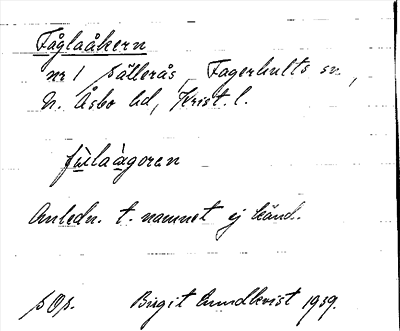 Fåglaåkern
nr 1 Sällerås, Fagerhults sn,
N. Åsbo hd, Krist. l.
fùlaàgoren
Anledn. t. namnet ej känd.
Birgit Lundkvist 1939.